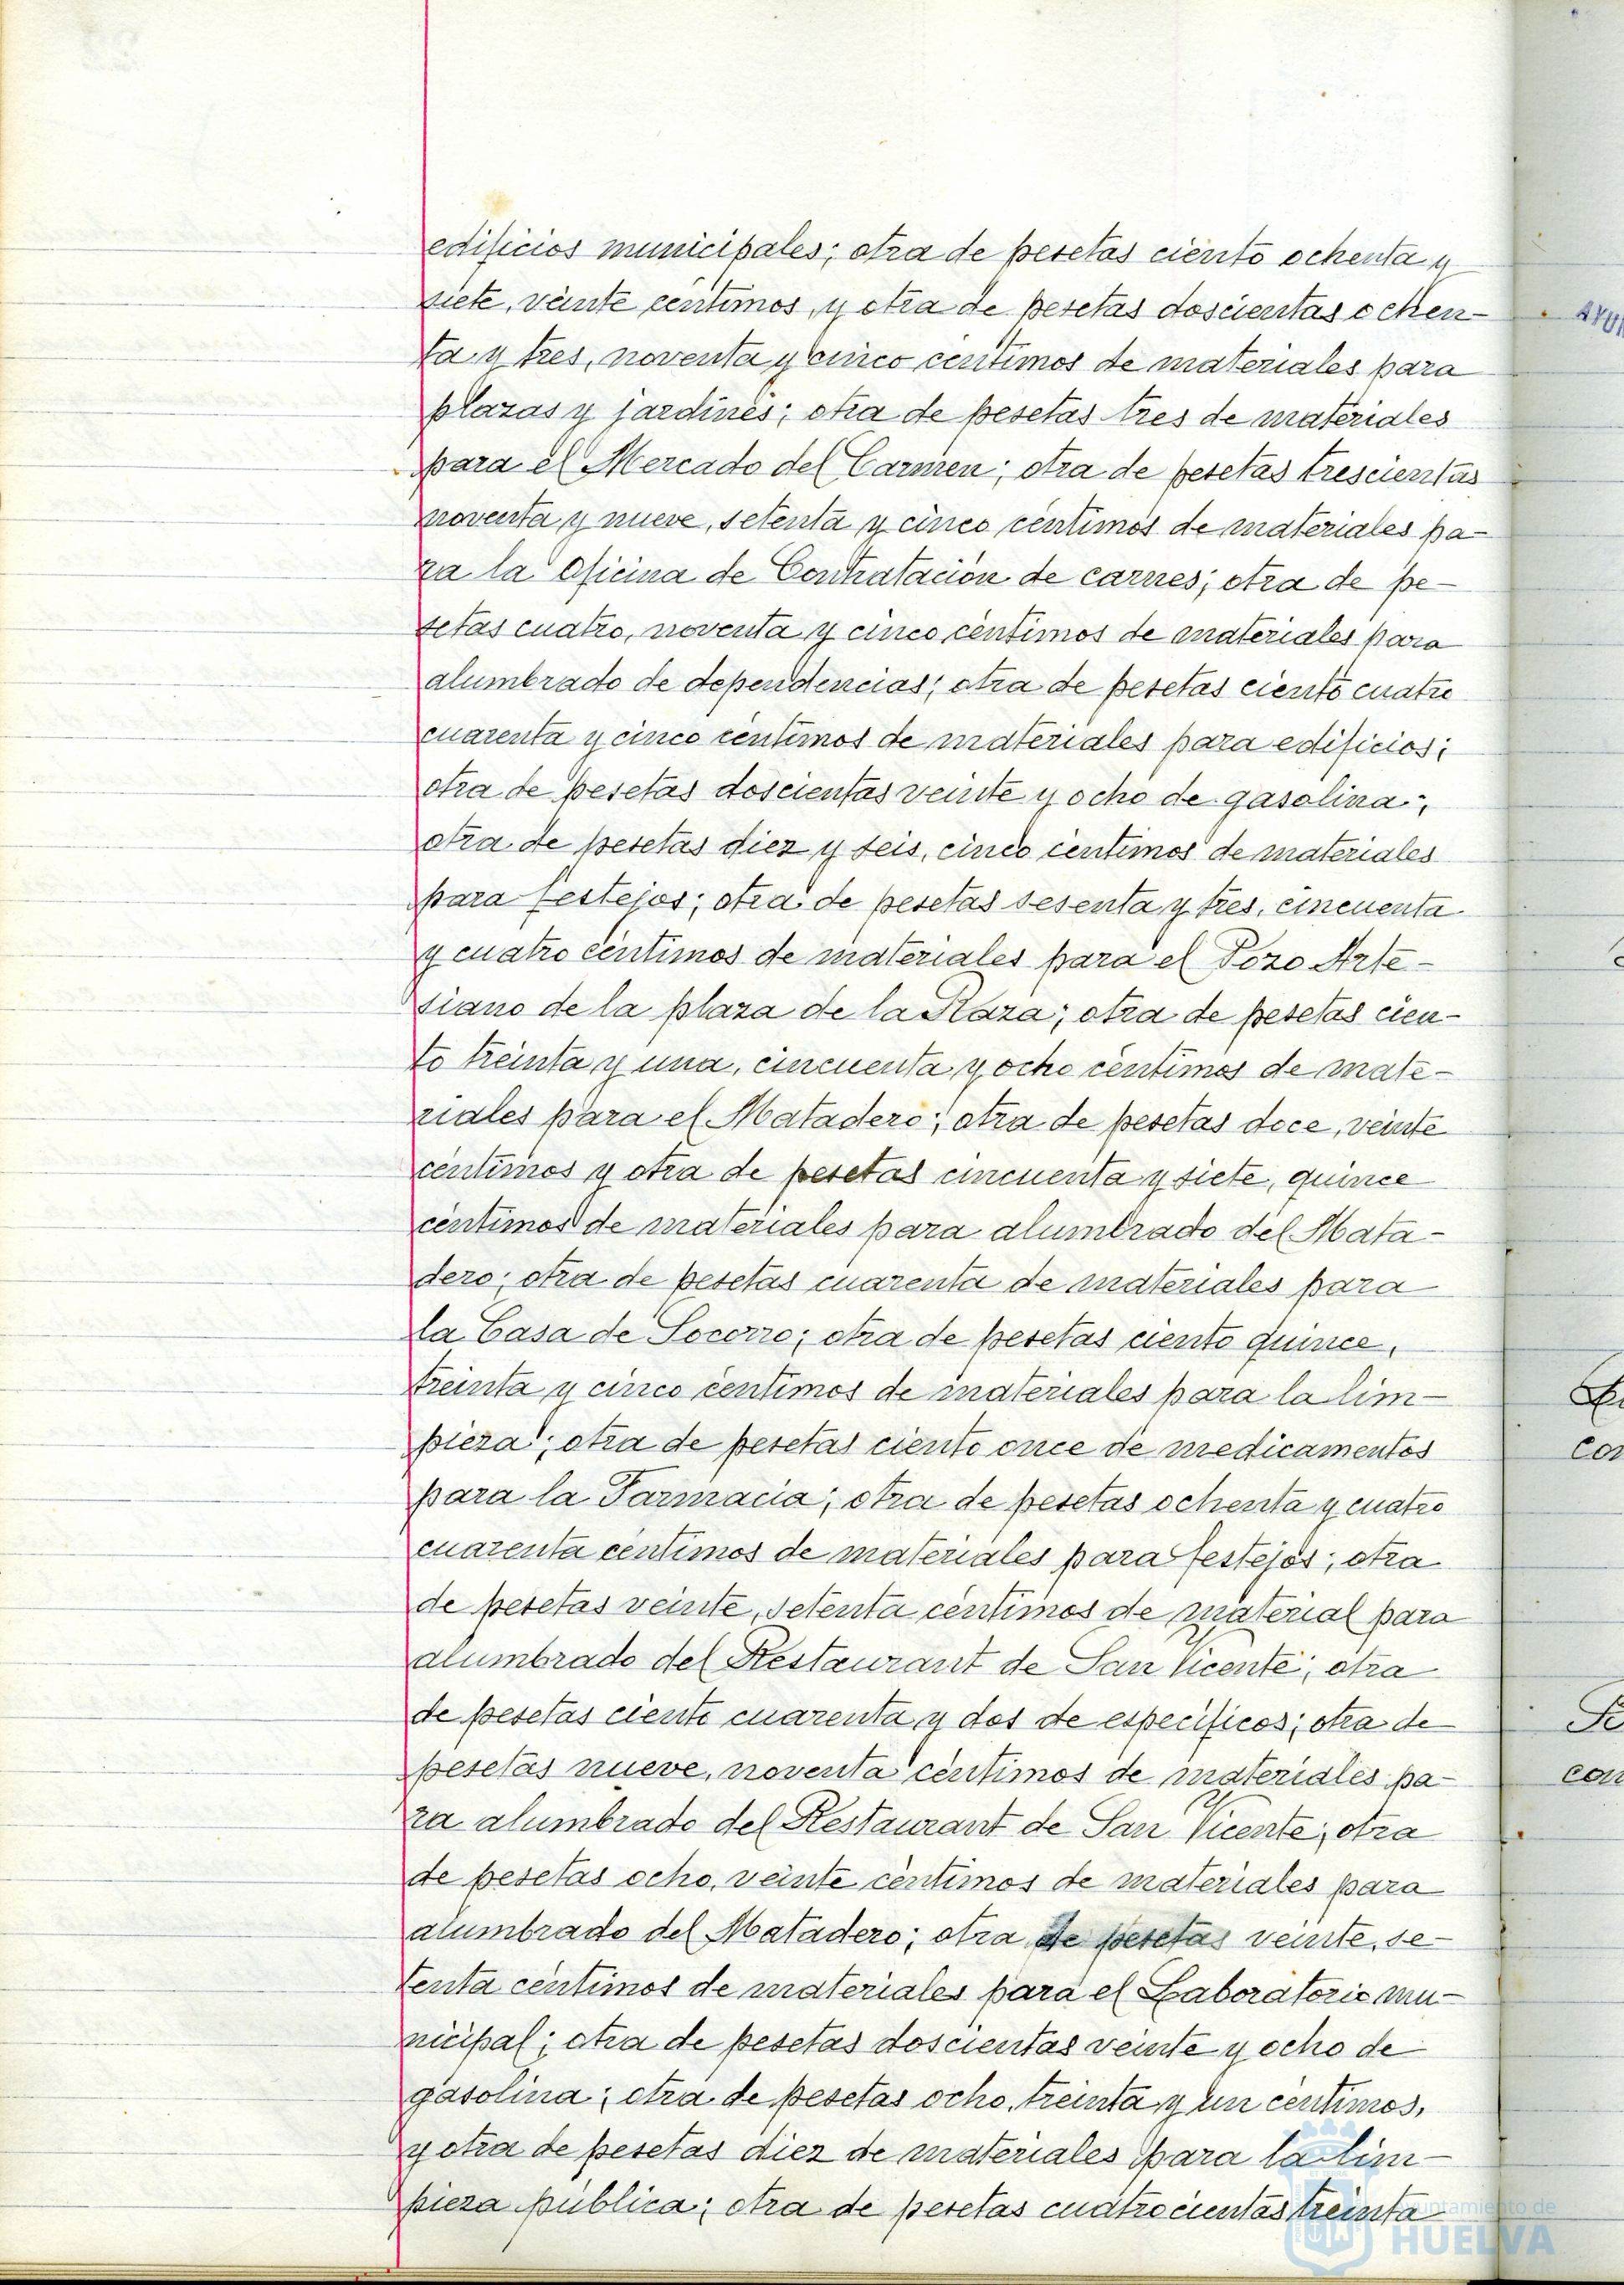 edificios municipales; otra de pesetas ciento ochenta y
siete, veinte centimos, y otra de pesetas doscientas ochen-
ta y tres, noventa y cinco centimos de materiales para
plazas y jardines; otra de pesetas tres de materiales
para el Mercado del Carmen; otra de pesetas trescientas
noventa y nueve, setenta y cinco céntimos de materiales pa-
ra la Oficina de Contratación de carnes; otra de pe-
setas cuatro, noventa y cinco céntimos de materiales para
alumbrado de dependencias; otra de pesetas ciento cuatro
cuarenta y cinco centimos de materiales para edificios;
otra de pesetas doscientas veinte y ocho de gasolina;
otra de pesetas diez y seis, cinco centimos de materiales
para festejos; otra de pesetas sesenta y tres, cincuenta
y cuatro céntimos de materiales para el Pozo Arte-
siano de la plaza de la Raza; otra de pesetas cien-
to treinta y una, cincuenta y ocho céntimos de mate-
riales para el Matadero; otra de pesetas doce, veinte
céntimos y otra de pesetas cincuenta y siete, quince
céntimos de materiales para alumbrado del Mata-
dero; otra de pesetas cuarenta de materiales para
la Casa de Socorro; otra de pesetas ciento quince,
treinta y cinco céntimos de materiales para la lim-
pieza; otra de pesetas ciento once de medicamentos
para la Farmacia; otra de pesetas ochenta y cuatro
cuarenta centimos de materiales para festejos; otra
de pesetas veinte, setenta céntimos de material para
alumbrado del Restaurant de San Vicente; otra
de pesetas ciento cuarenta y dos de especificos; otra de
pesetas nueve, noventa céntimos de materiales pa-
ra alumbrado del Restaurant de San Vicente; otra
de pesetas ocho, veinte céntimos de materiales para
alumbrado del Matadero; otra de pesetas veinte, se-
tenta céntimos de materiales para el Laboratorio mu-
nicipal; otra de pesetas doscientas veinte y ocho de
gasolina; otra de pesetas ocho, treinta y un centimos,
y otra de pesetas diez de materiales para la lim-
pieza pública; otra de pesetas cuatrocientas treinta
Ayuntamiento de
HUELVA